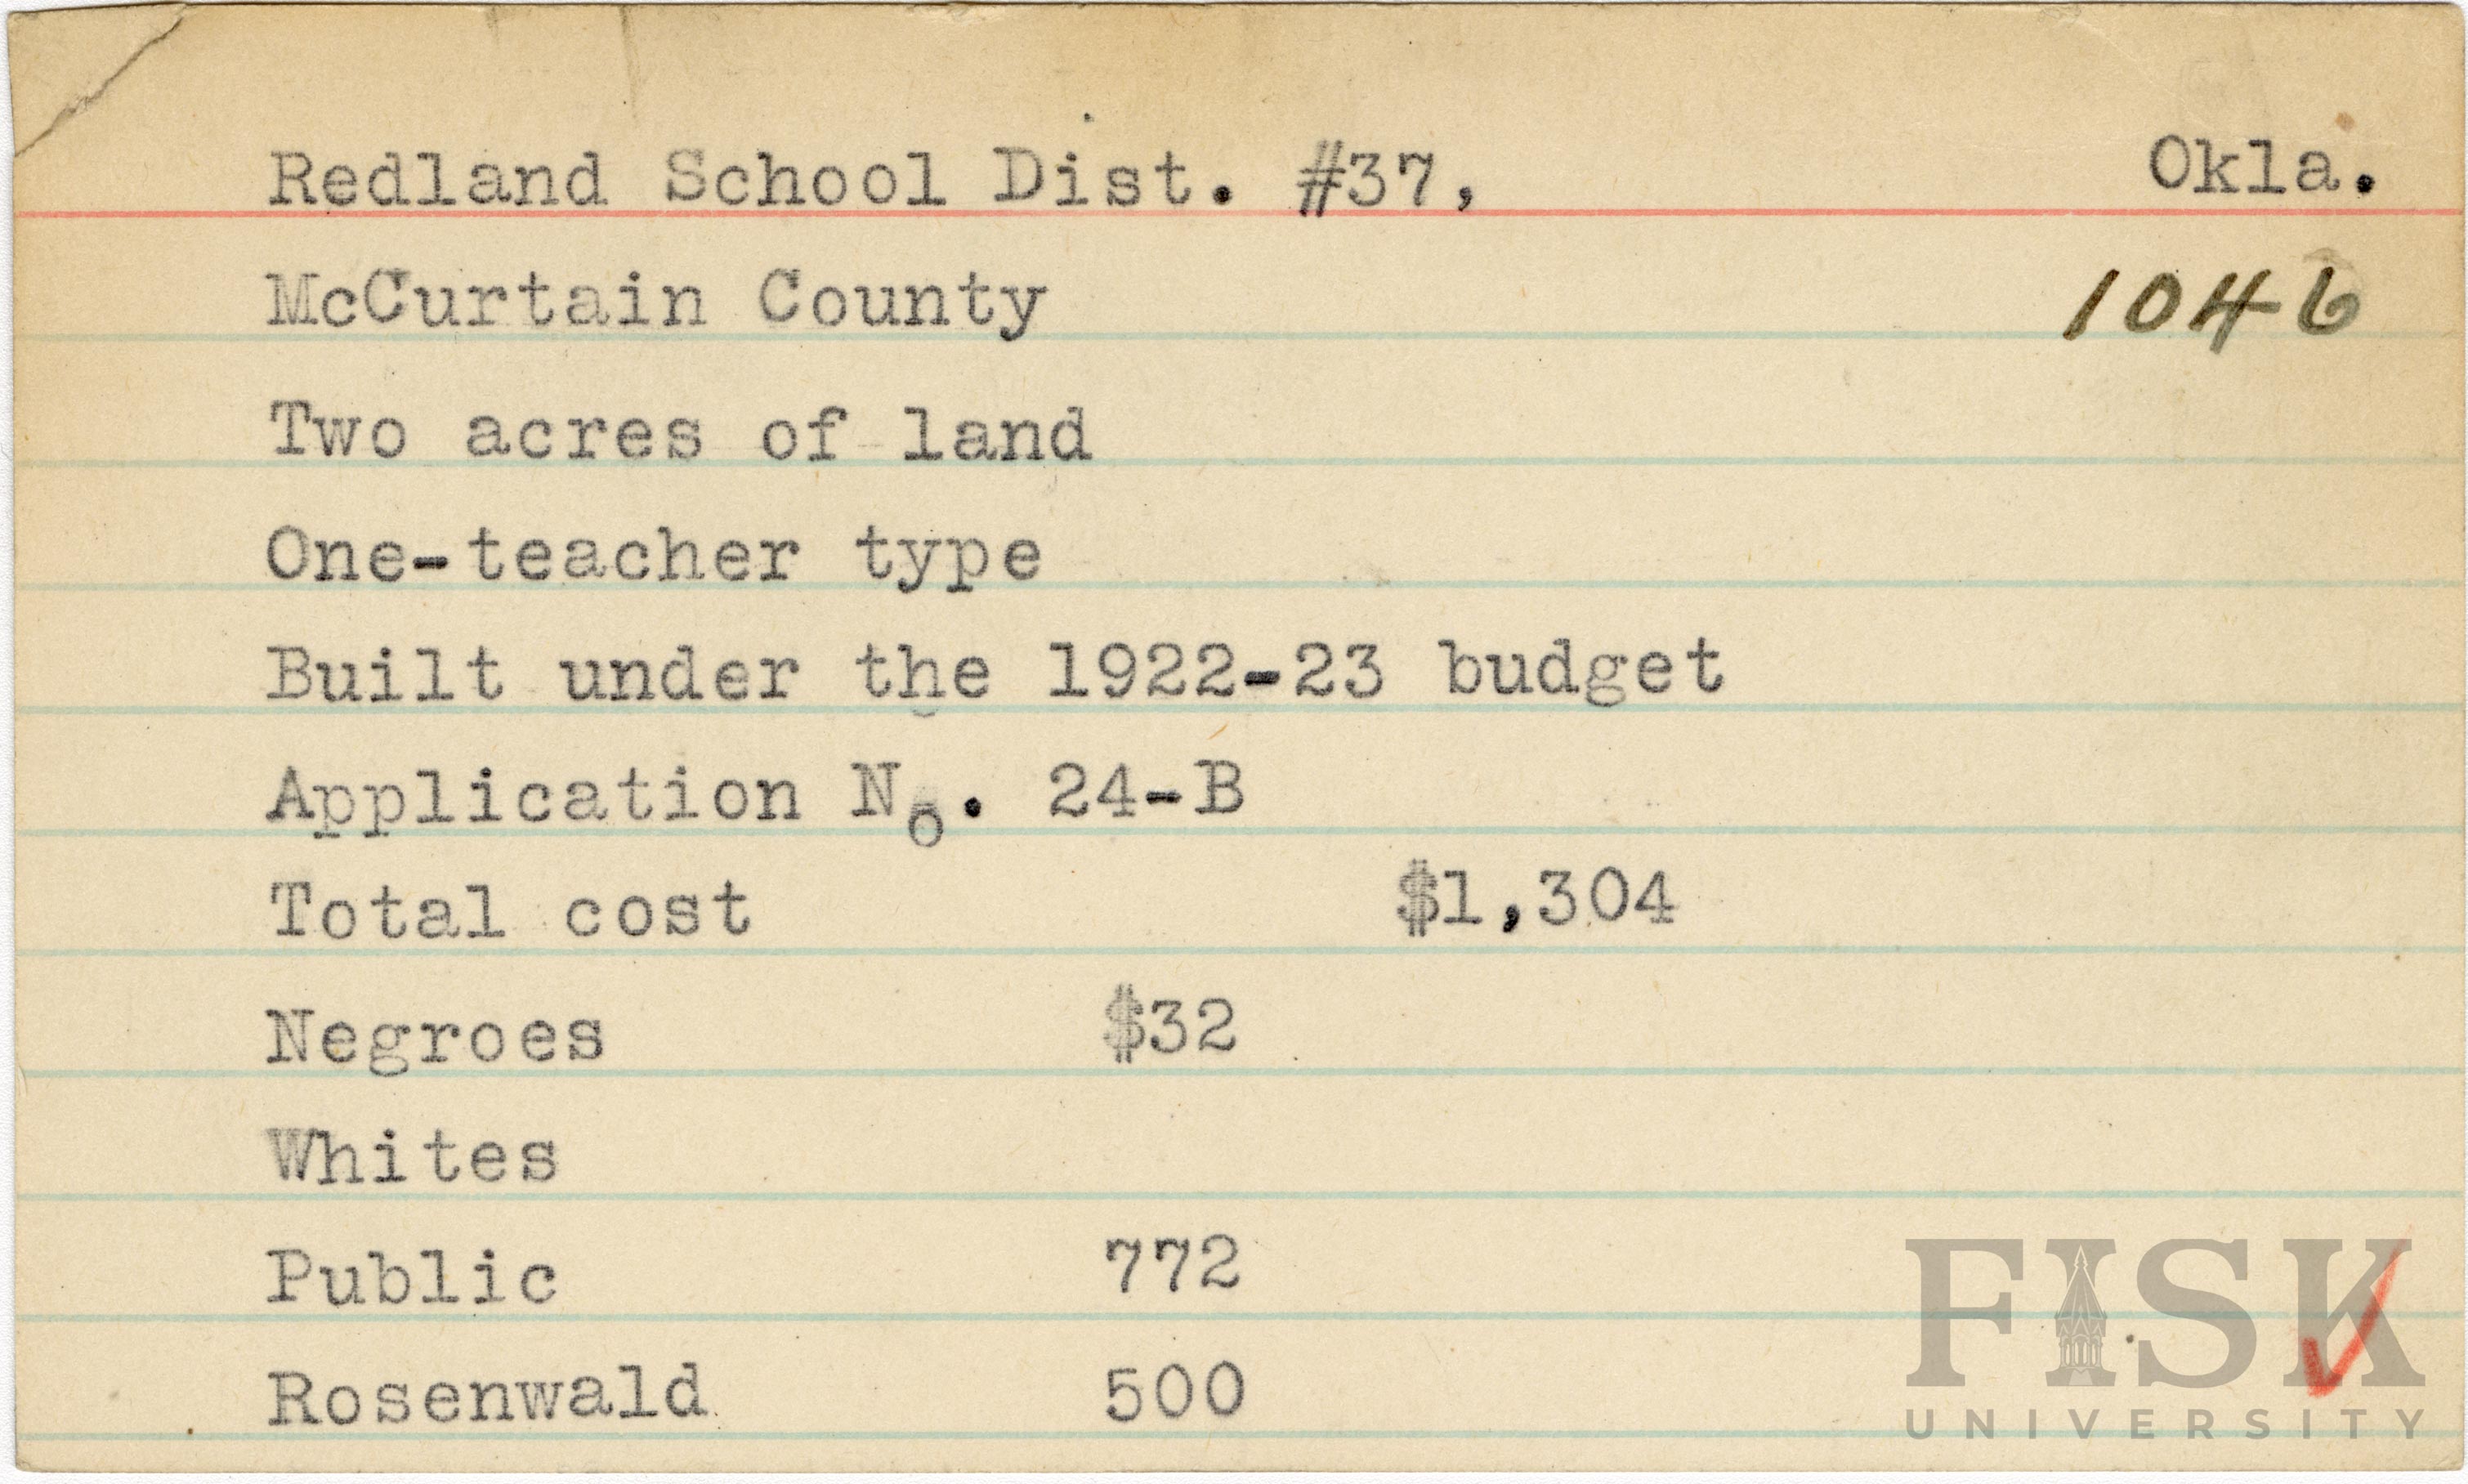 Redland School Dist. #37, Okla.
McCurtain County 1046
Two acres of land
One-teacher type
Built under the 1922-23 budget
Application No. 24-B
Total cost $1,304
Negroes $32
Whites
Public 772
Rosenwald 500
FISK
UNIVERSITY